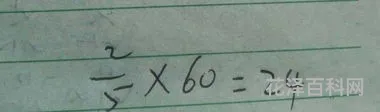 2/5 × 60 = 24
花泽百科网